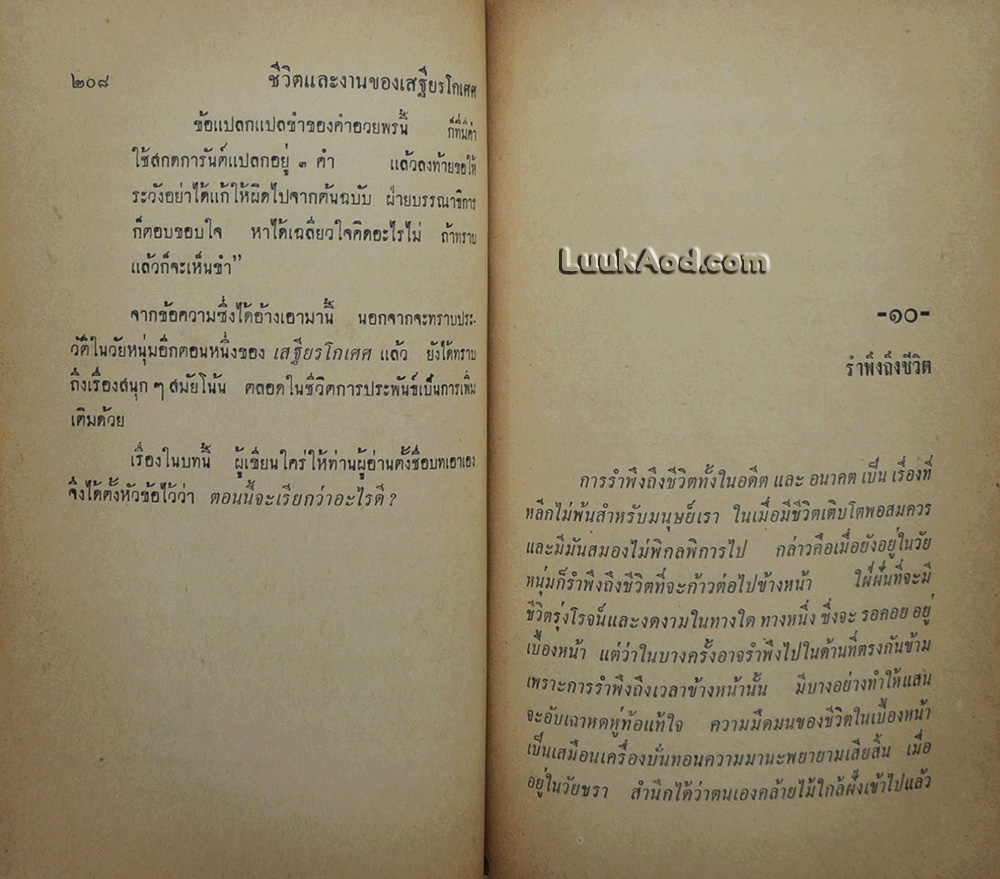 ๒๐๘ ชีวิตและงานของเสฐียรโกเศศ
ข้อแปลกแปลขำของคำอวยพรนี้ ก็ที่มีคำ
ใช้สกดการันต์แปลกอยู่ ๓ คำ แล้วลงท้ายขอให้
ระวังอย่าได้แก้ให้ผิดไปจากต้นฉบับ ฝ่ายบรรณาธิการ
ก็ตอบขอบใจ หาได้เฉลียวใจคิดอะไรไม่ ถ้าทราบ
แล้วก็จะเห็นขำ”
จากข้อความซึ่งได้อ้างเอามานี้ นอกจากจะทราบประ-
วัติในวัยหนุ่มอีกตอนหนึ่งของ เสฐียรโกเศศ แล้ว ยังได้ทราบ
ถึงเรื่องสนุก ๆ สมัยโน้น ตลอดในชีวิตการประพันธ์เป็นการเพิ่ม
เติมด้วย
เรื่องในบทนี้ ผู้เขียนใคร่ให้ท่านผู้อ่านตั้งชื่อบทเอาเอง
จึงได้ตั้งหัวข้อไว้ว่า ตอนนี้จะเรียกว่าอะไรดี ?
LuukAod.com
-๑๐-
รำพึงถึงชีวิต
การรำพึงถึงชีวิตทั้งในอดีต และ อนาคต เป็น เรื่องที่
หลีกไม่พ้นสำหรับมนุษย์เรา ในเมื่อมีชีวิตเติบโตพอสมควร
และมีมันสมองไม่พิกลพิการไป กล่าวคือเมื่อยังอยู่ในวัย
หนุ่มก็รำพึงถึงชีวิตที่จะก้าวต่อไปข้างหน้า ใฝ่ฝันที่จะมี
ชีวิตรุ่งโรจน์และงดงามในทางใด ทางหนึ่ง ซึ่งจะ รอคอย อยู่
เบื้องหน้า แต่ว่าในบางครั้งอาจรำพึงไปในด้านที่ตรงกันข้าม
เพราะการรำพึงถึงเวลาข้างหน้านั้น มีบางอย่างทำให้แสน
จะอับเฉาหดหู่ท้อแท้ใจ ความมืดมนของชีวิตในเบื้องหน้า
เป็นเสมือนเครื่องบั่นทอนความมานะพยายามเสียสิ้น เมื่อ
อยู่ในวัยชรา สำนึกได้ว่าตนเองคล้ายไม้ใกล้ฝั่งเข้าไปแล้ว